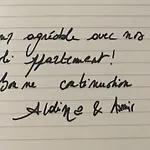 agréable avec nos
appartement!
Bonne continuation
Aldine & Amir